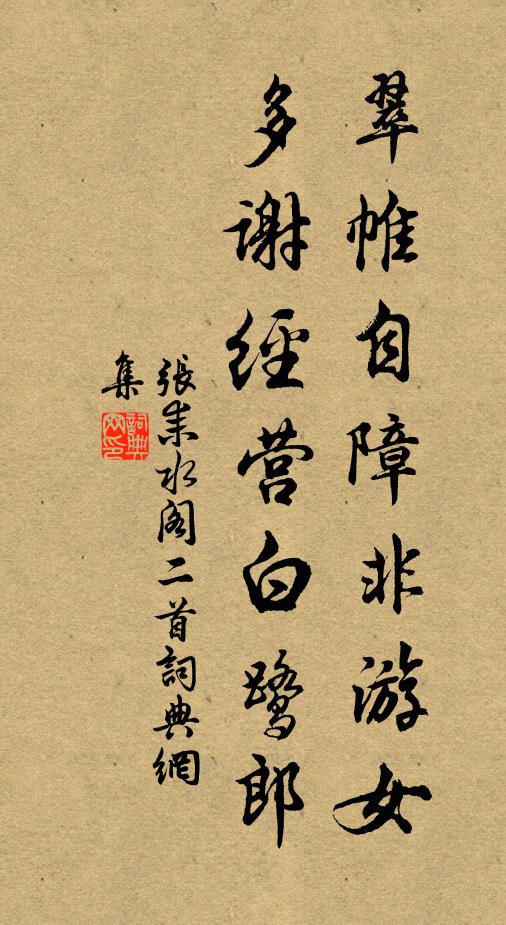 翠帷自障非游女
多谢經营白鹭郎
張耒水阁二首詞典網
集
詞典
网印